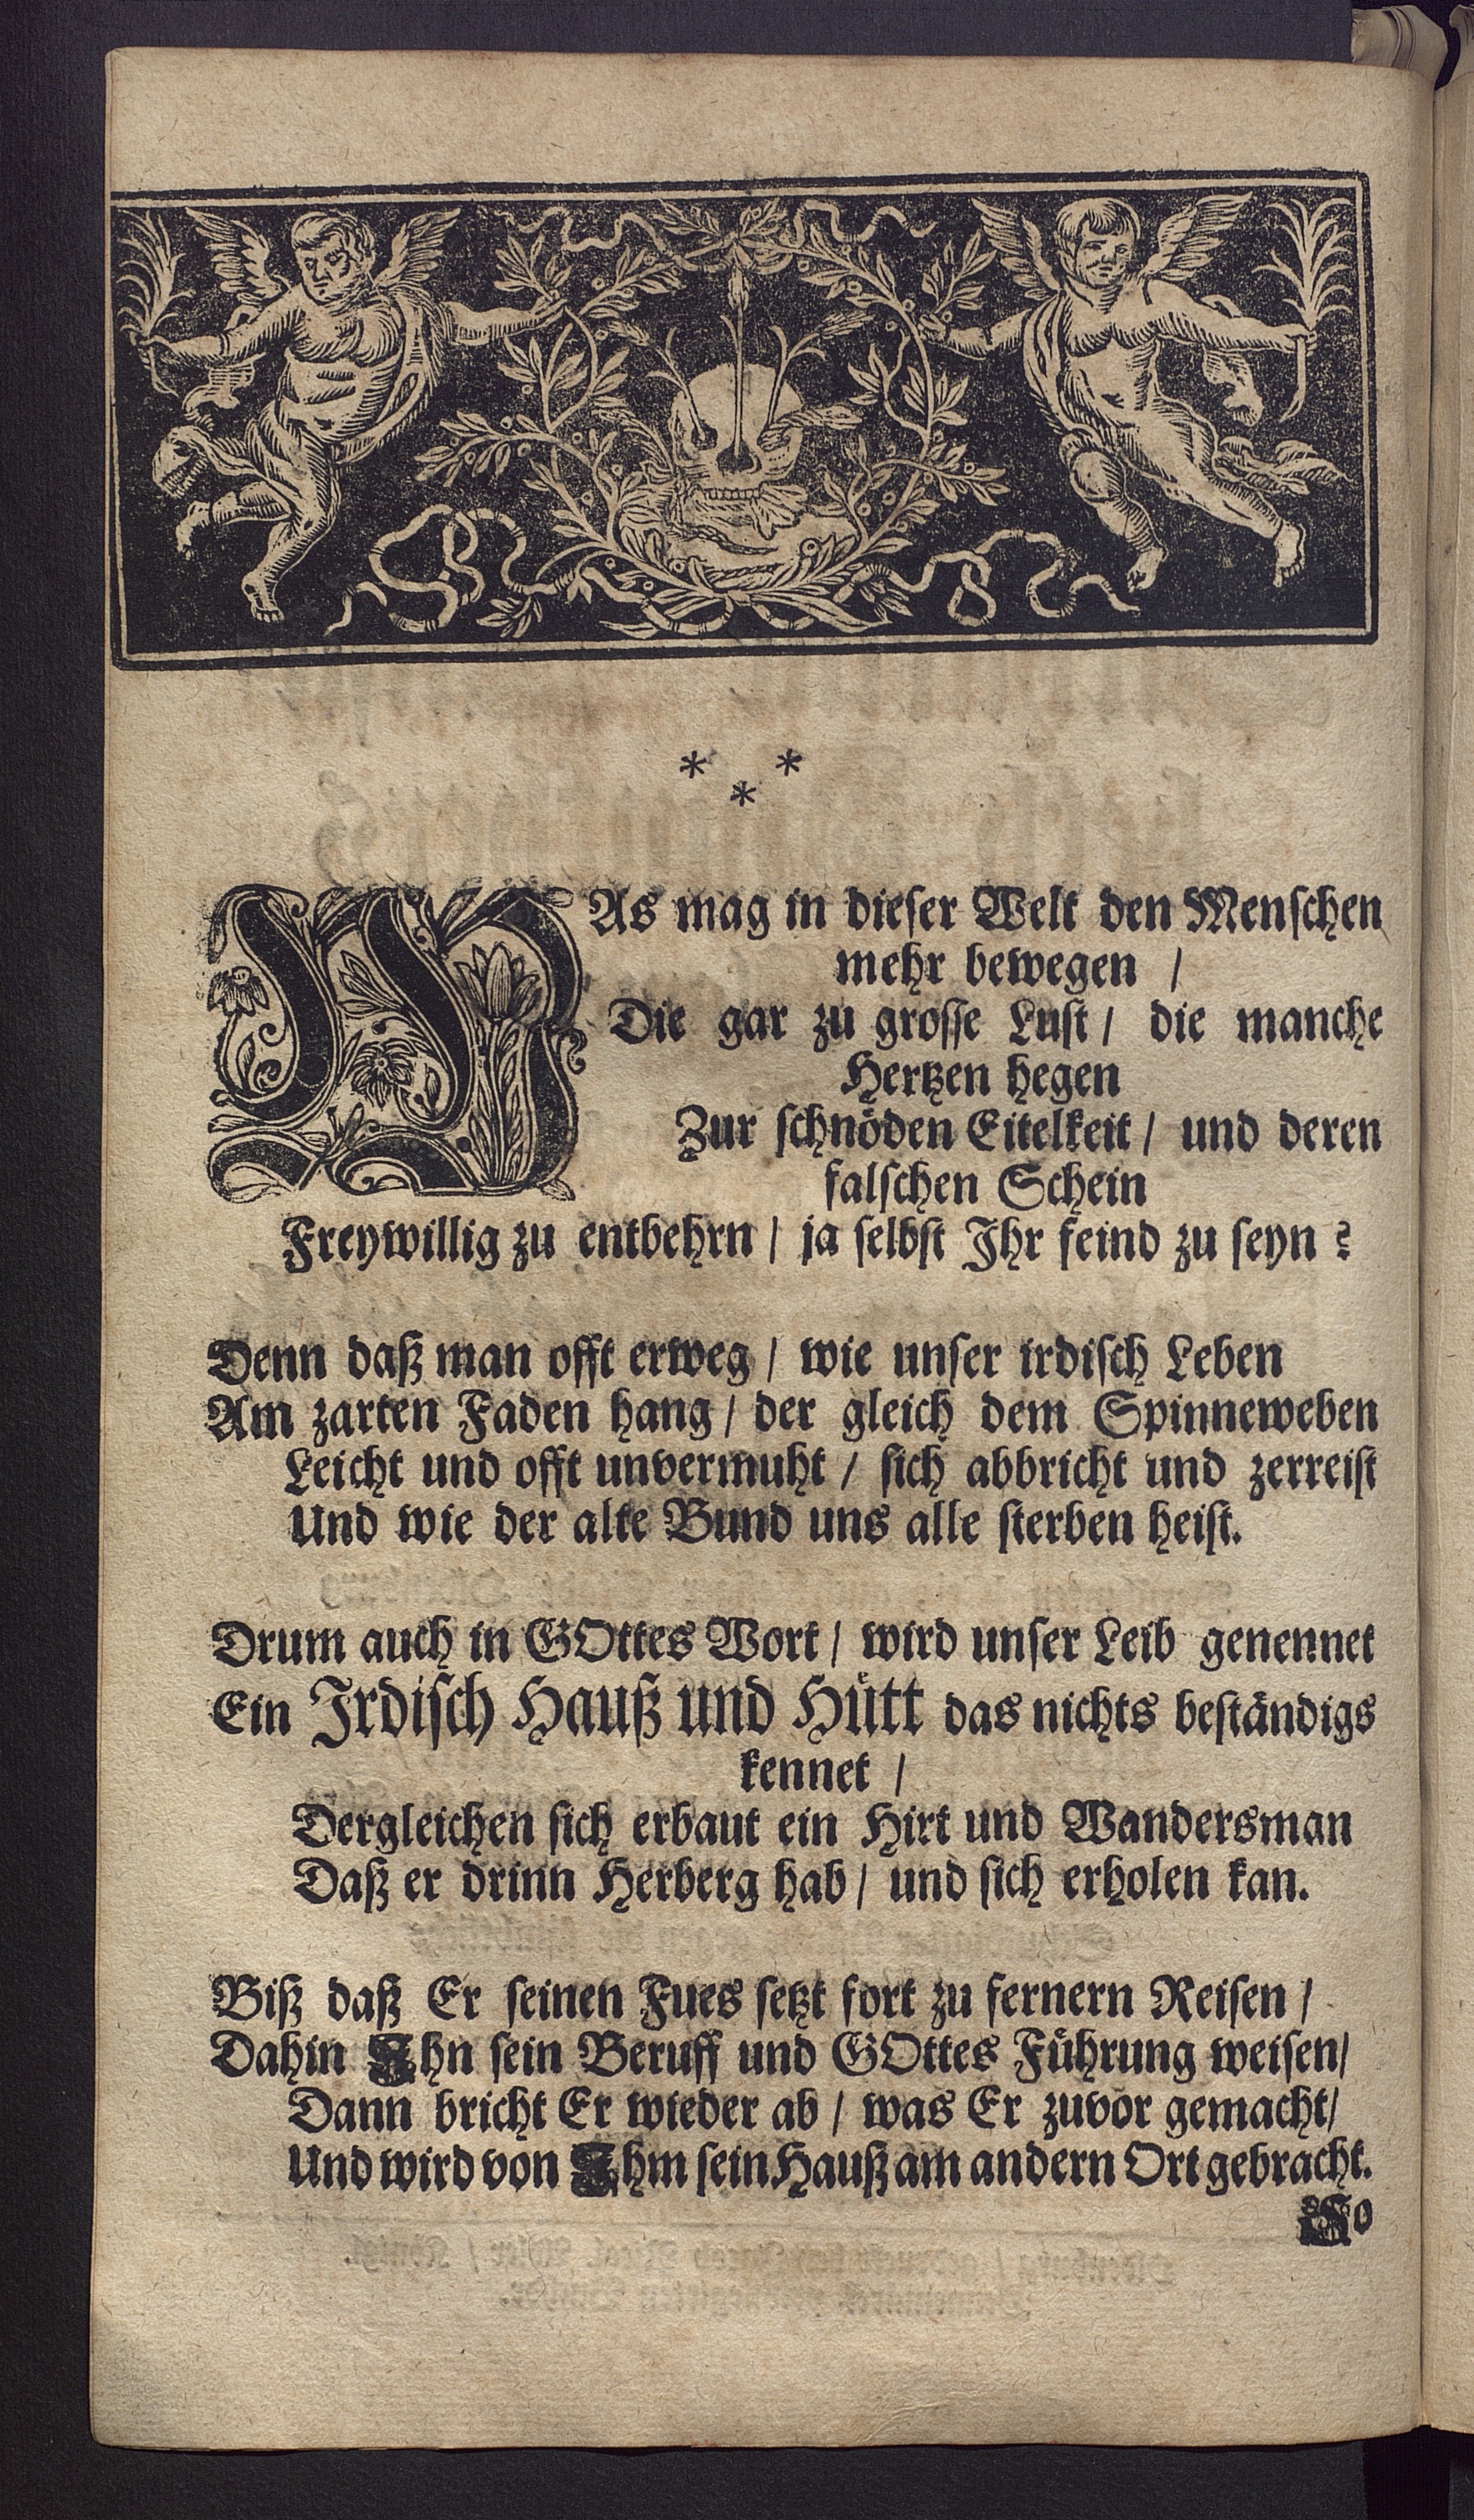 * *
*
WAs mag in dieser Welt den Menschen
mehr bewegen /
Die gar zu grosse Lust / die manche
Hertzen hegen
Zur schnöden Eitelkeit / und deren
falschen Schein
Freywillig zu entbehrn / ja selbst Ihr feind zu seyn ?
Denn daß man offt erweg / wie unser irdisch Leben
Am zarten Faden hang / der gleich dem Spinneweben
Leicht und offt unvermuht / sich abbricht und zerreist
Und wie der alte Bund uns alle sterben heist.
Drum auch in GOttes Wort / wird unser Leib genennet
Ein Irdisch Hauß und Hütt das nichts beständigs
kennet /
Dergleichen sich erbaut ein Hirt und Wandersman
Daß er drinn Herberg hab / und sich erholen kan.
Biß daß Er seinen Fues setzt fort zu fernern Reisen /
Dahin Ihn sein Beruff und GOttes Führung weisen/
Dann bricht Er wieder ab / was Er zuvor gemacht/
Und wird von Ihm sein Hauß am andern Ort gebracht.
So